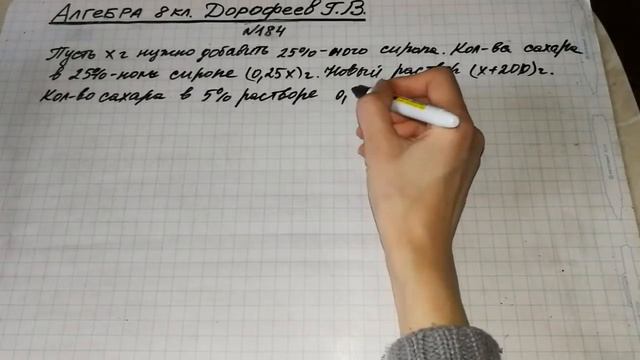 Алгебра 8 кл. Дорофеев Г.В.
№184
Пусть х г нужно добавить 25%-ного сиропа. Кол-ва сахара
в 25%-ном сиропе (0,25х) г. Новый раствор (х+200) г.
Кол-во сахара в 5% растворе 0,